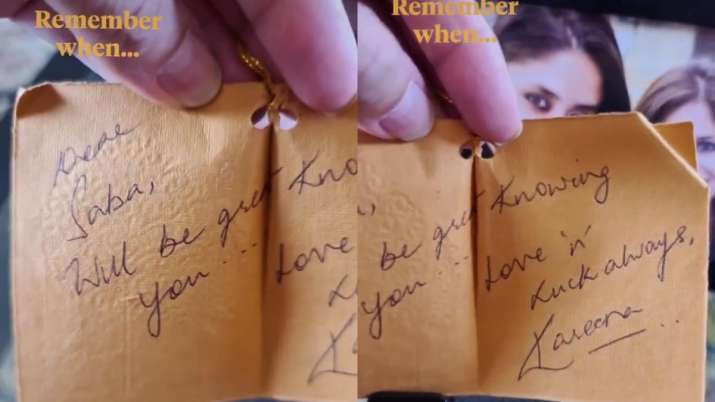 Remember
when...
Dear
Saba,
Will be great Kno
you... Love
L
K
Remember
when...
be great Knowing
you... Love 'n'
Luck always,
Kareena...